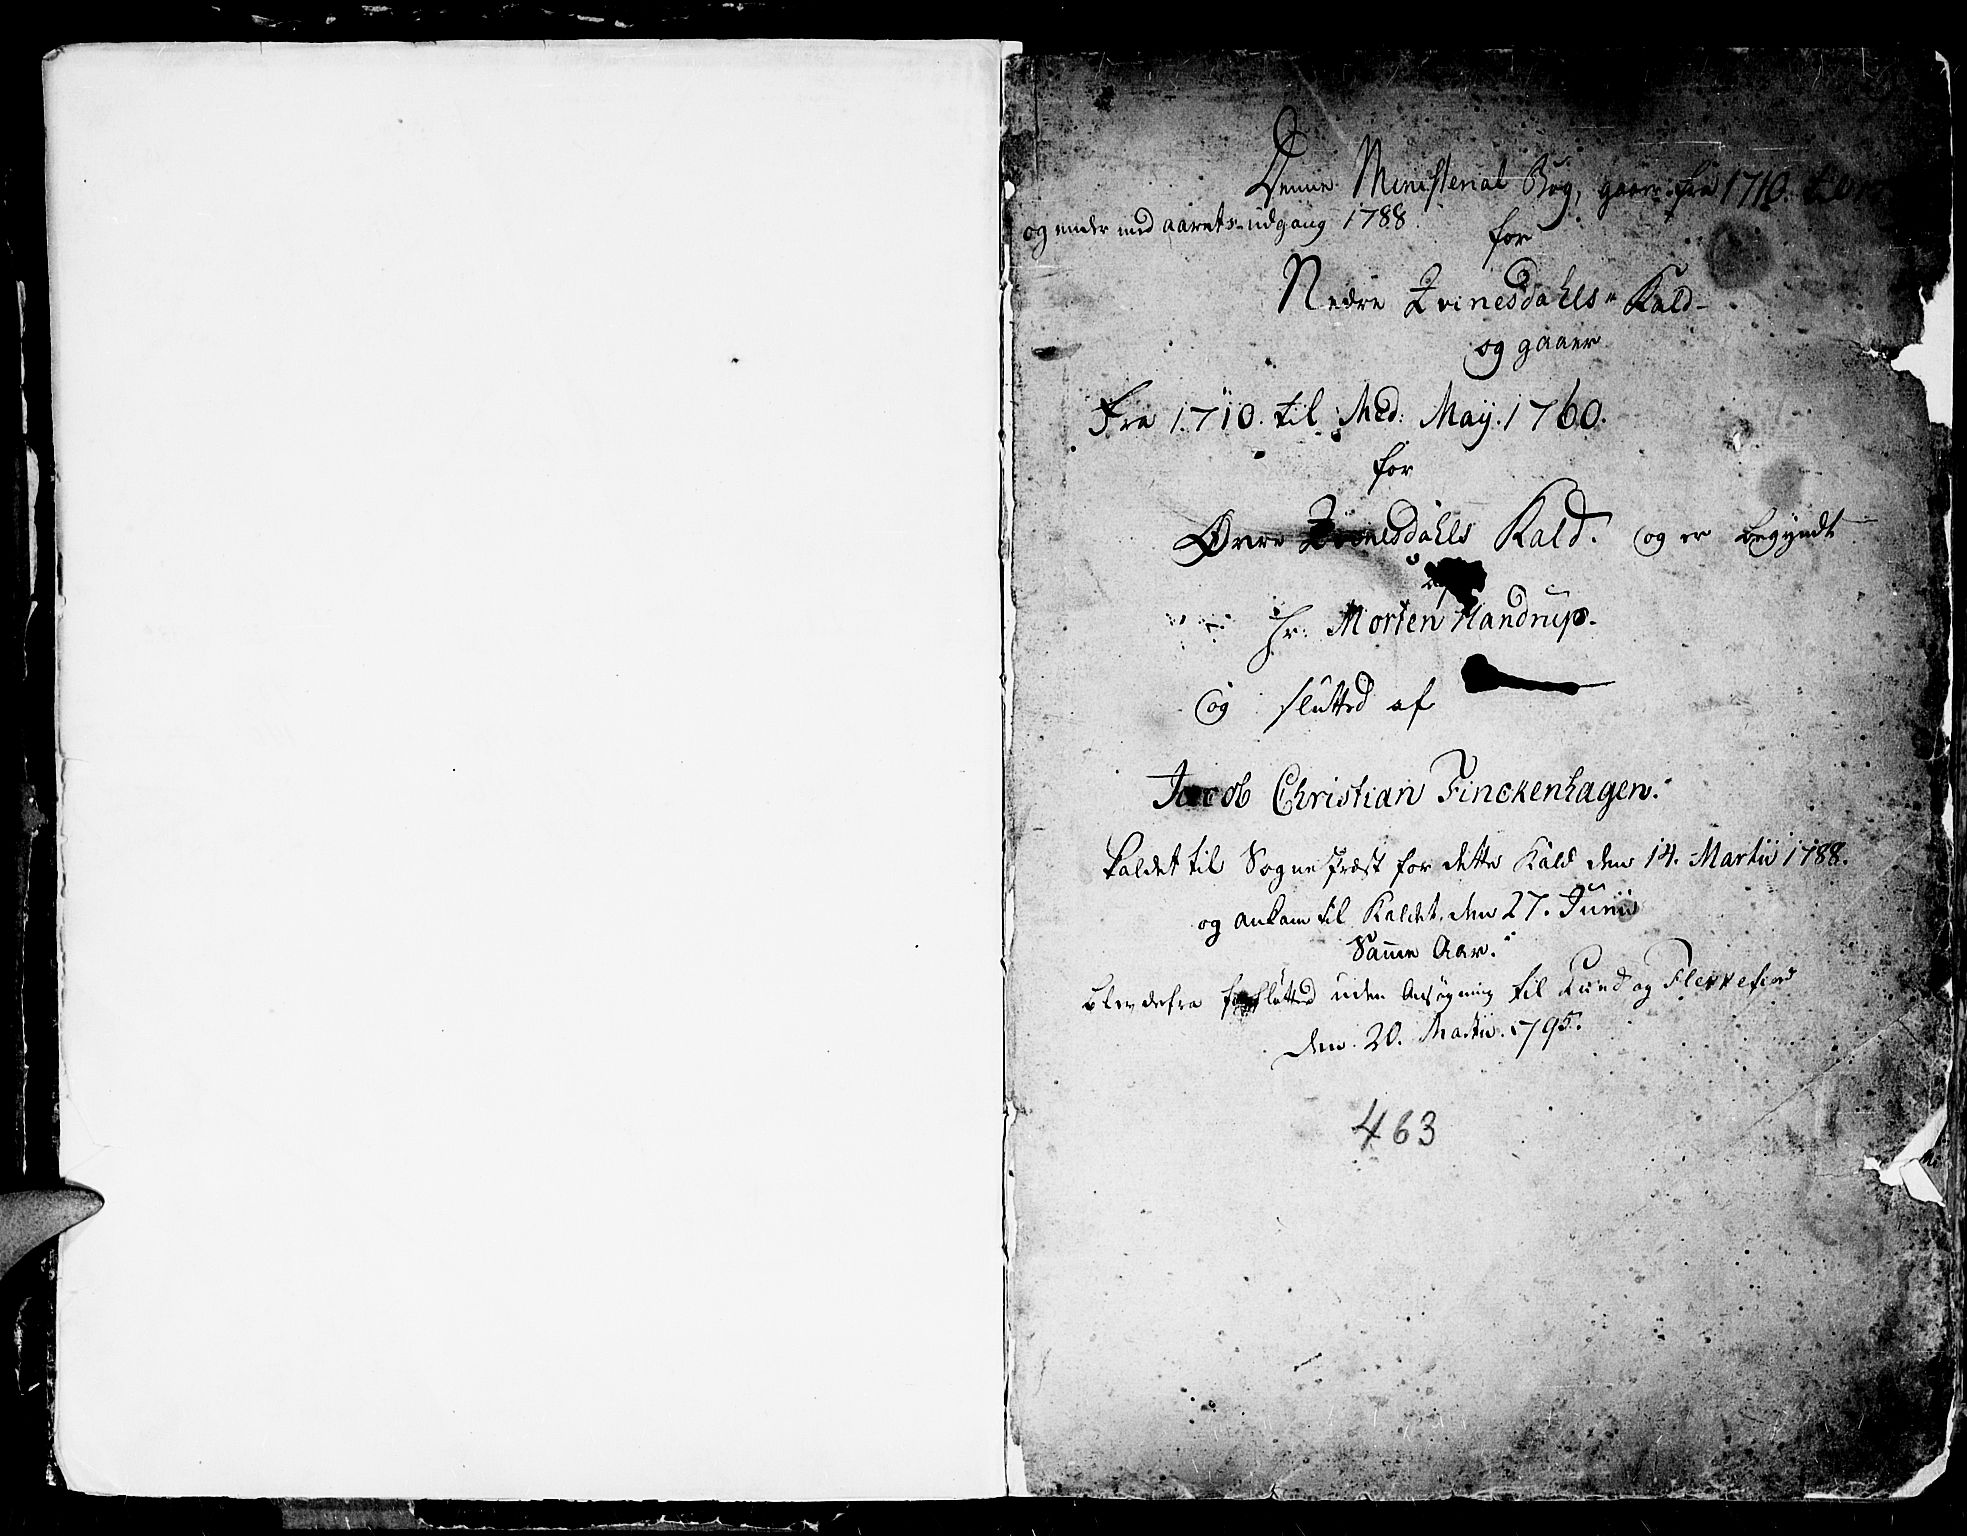 Denne Ministerial Bog, gaaer fra 1710. til
og ender med aarets udgang 1788
for
Nedre Qvinesdahls Kald
og gaaer
Fra 1710. til Med: Maÿ. 1760.
for
Øvre Qvinesdahls Kald. og er begÿndt
af
Hr: Morten Handrup.
og slutted af
Jacob Christian Finckenhagen.
kaldet til Sogne Præst for dette Kald den 14. Martii 1788.
og ankom til Kaldet den 27. Junii
Samme Aar.
blev derfra forflÿtted uden Ansøgning til Lund og Flekkefiord
den 20. Martii. 1795.
463